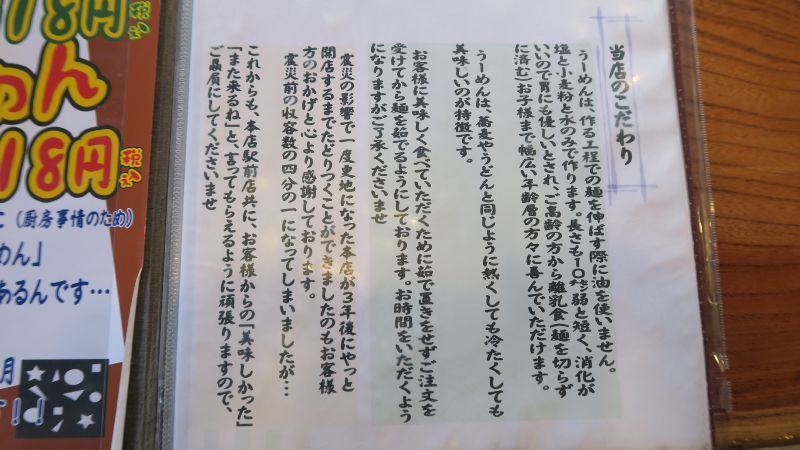 当店のこだわり
うーめんは、作る工程での麺を伸ばす際に油を使いません。
塩と小麦粉と水のみで作ります。長さも10㌢弱と短く、消化が
いいので胃にも優しいとされ、ご高齢の方から離乳食(麺を切らず
に済む)お子様まで幅広い年齢層の方々に喜んでいただけます。
うーめんは、蕎麦やうどんと同じように熱くしても冷たくしても
美味しいのが特徴です。
お客様に美味しく食べていただくために茹で置きをせずご注文を
受けてから麺を茹でるようにしております。お時間をいただくよう
になりますがご了承くださいませ
震災の影響で一度更地になった本店が3年後にやっと
開店するまでたどりつくことができましたのもお客様
方のおかげと心より感謝しております。
震災前の収容数の四分の一になってしまいましたが…
これからも、本店駅前店共に、お客様からの「美味しかった」
「また来るね」と、言ってもらえるように頑張りますので、
ご贔屓にしてくださいませ
18円
税込
めん
18円
税込
(厨房事情のため)
めん」
あるんです…
月
!